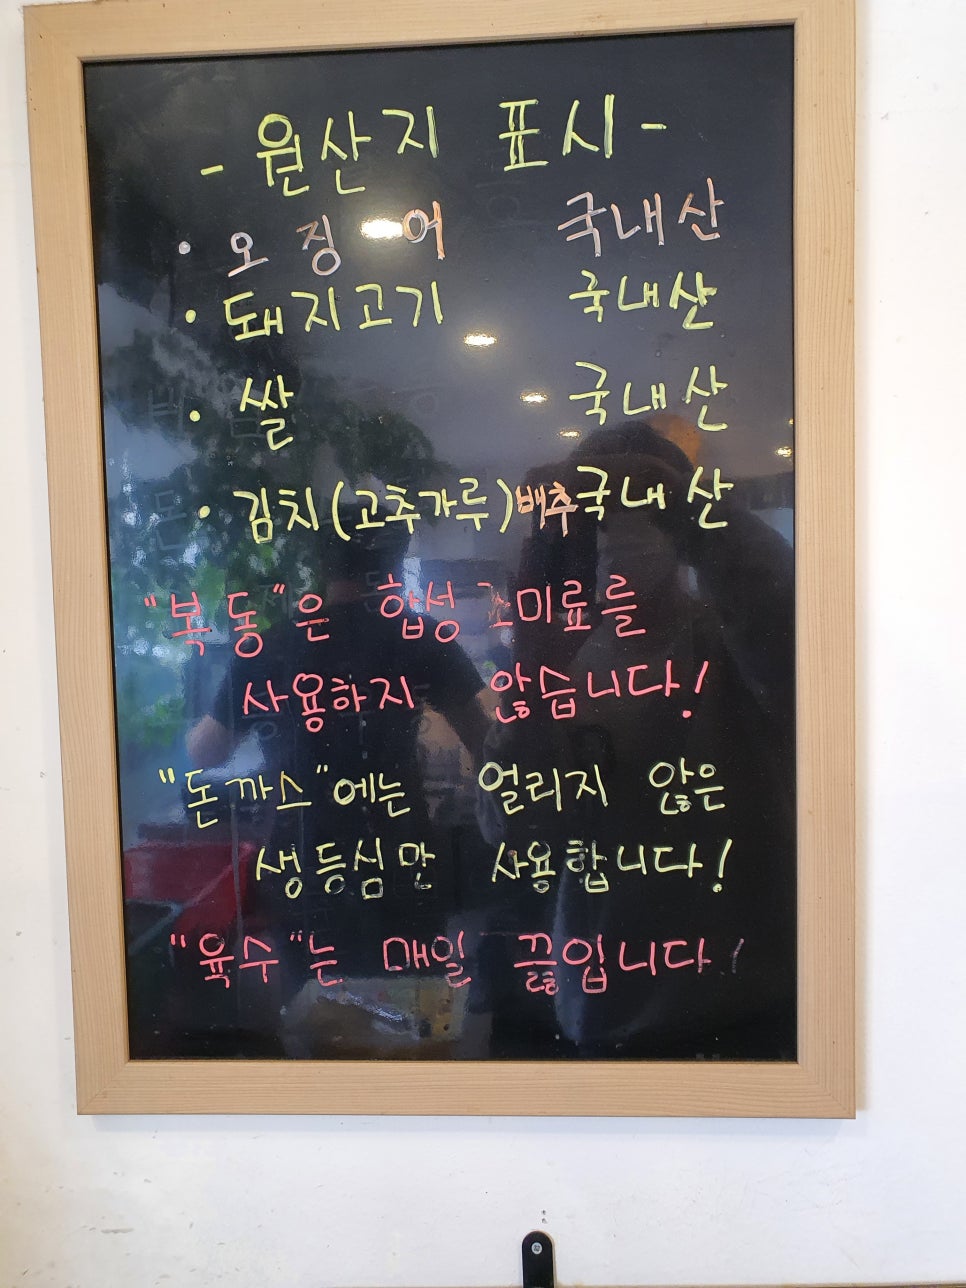 - 원산지 표시 -
· 오징어 국내산
· 돼지고기 국내산
· 쌀 국내산
· 김치(고추가루)배추국내산
"복동"은 합성 조미료를
사용하지 않습니다!
"돈까스"에는 얼리지 않은
생등심만 사용합니다!
"육수"는 매일 끓입니다!